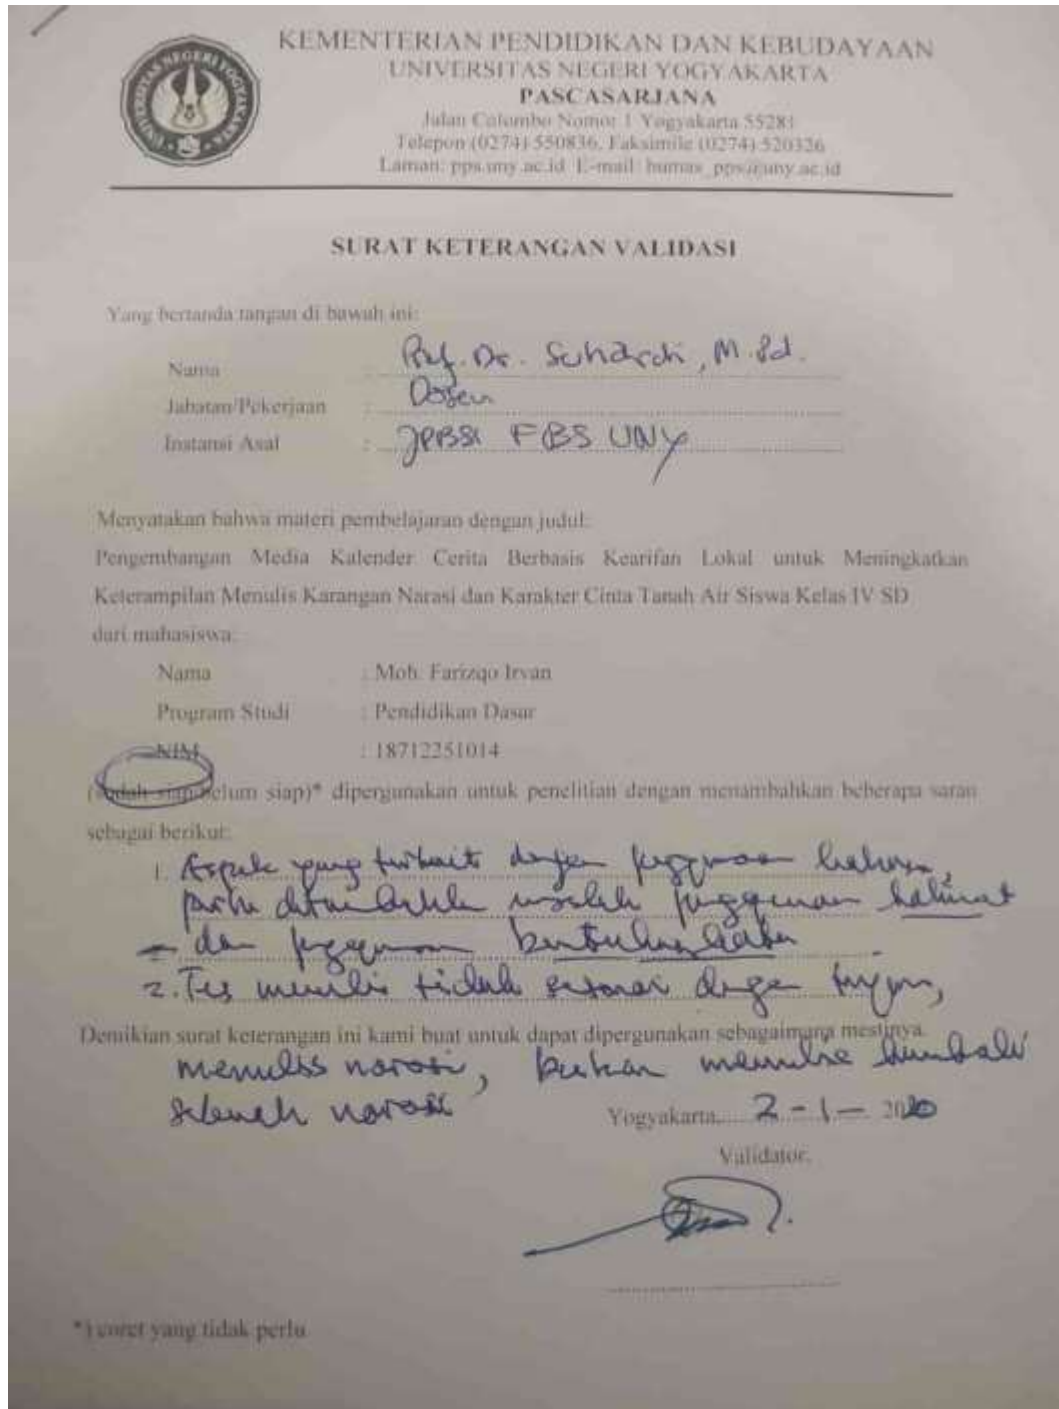 UNIVERSITAS NEGERI YOGYAKARTA
KEMENTERIAN PENDIDIKAN DAN KEBUDAYAAN
UNIVERSITAS NEGERI YOGYAKARTA
PASCASARJANA
Jalan Colombo Nomor 1 Yogyakarta 55281
Telepon (0274) 550836, Faksimile (0274) 520326
Laman: pps.uny.ac.id E-mail: humas_pps@uny.ac.id
SURAT KETERANGAN VALIDASI
Yang bertanda tangan di bawah ini:
Nama : Prof. Dr. Suhardi, M.Pd.
Jabatan/Pekerjaan : Dosen
Instansi Asal : JPBSI FBS UNY
Menyatakan bahwa materi pembelajaran dengan judul:
Pengembangan Media Kalender Cerita Berbasis Kearifan Lokal untuk Meningkatkan
Keterampilan Menulis Karangan Narasi dan Karakter Cinta Tanah Air Siswa Kelas IV SD
dari mahasiswa:
Nama : Moh. Farizqo Irvan
Program Studi : Pendidikan Dasar
NIM : 18712251014
(sudah siap/belum siap)* dipergunakan untuk penelitian dengan menambahkan beberapa saran
sebagai berikut:
1. Aspek yang terkait dengan penggunaan bahasa,
perlu ditambahkan masalah penggunaan kalimat
dan penggunaan
2. Tes menulis tidak sesuai dengan tujuan,
Demikian surat keterangan ini kami buat untuk dapat dipergunakan sebagaimana mestinya.
menulis narasi, bukan menulis kembali
sebuah narasi
Yogyakarta, 2 - 1 - 2020
Validator,
*) coret yang tidak perlu